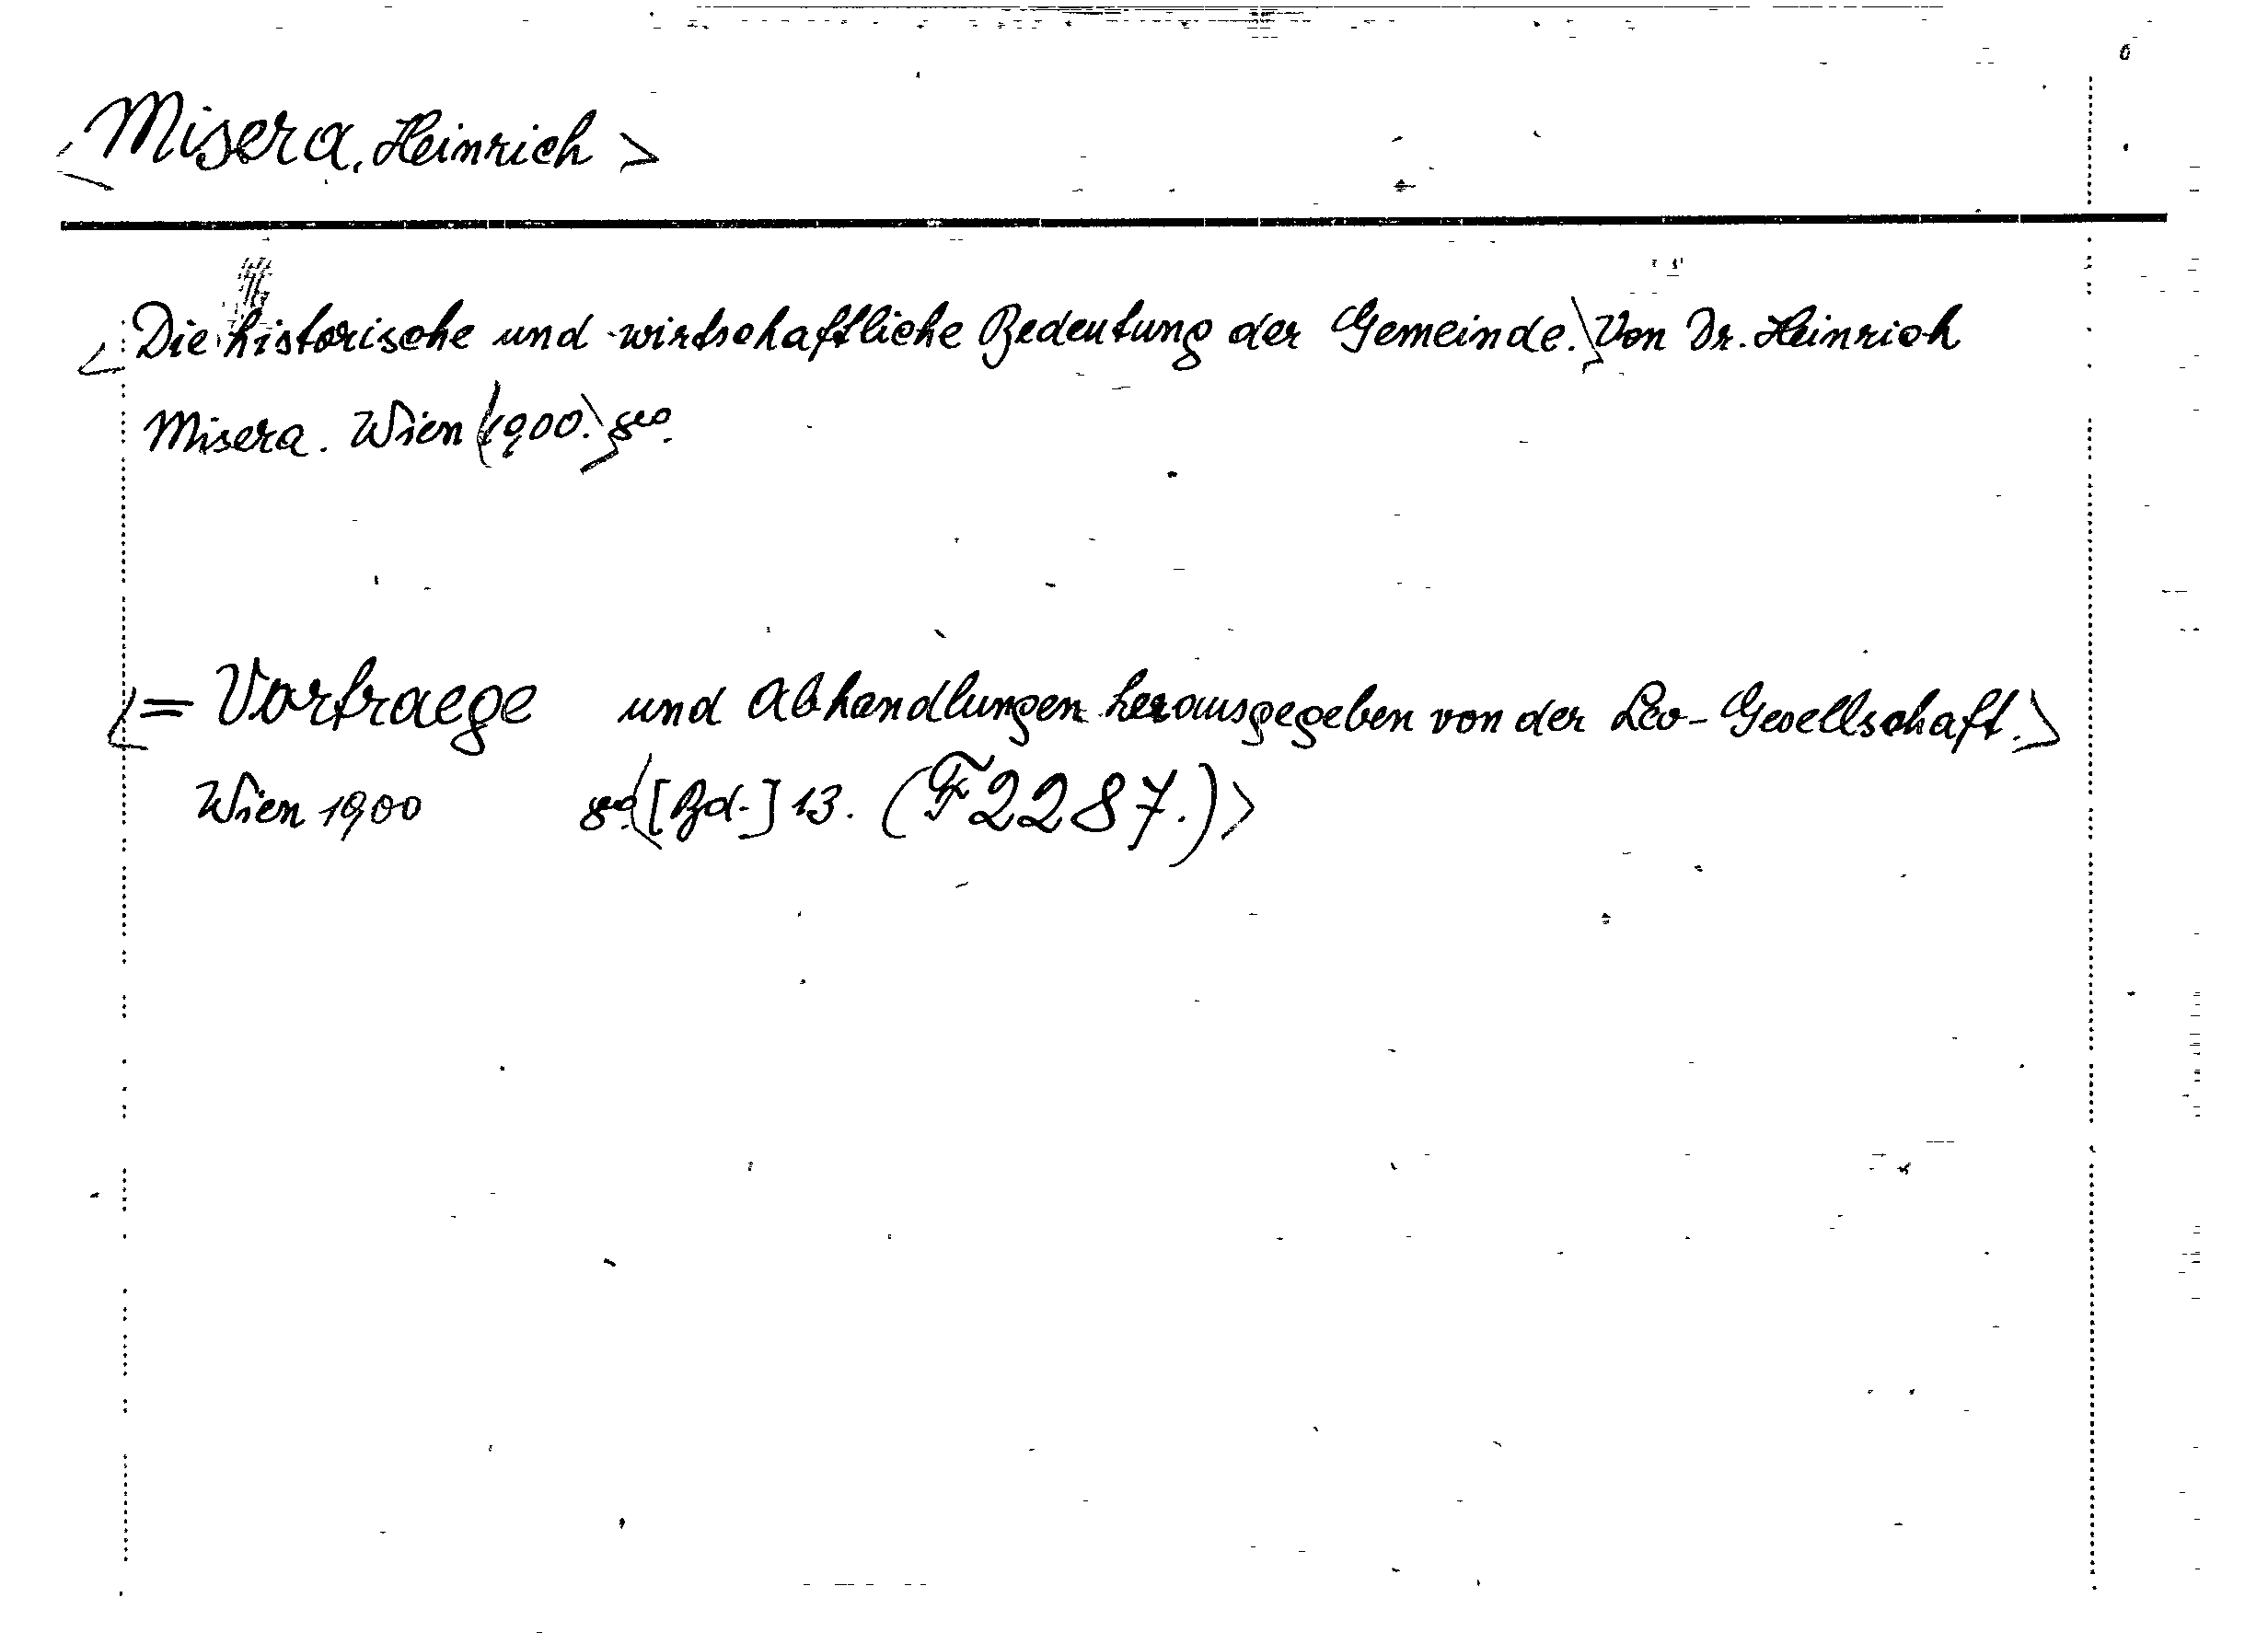 <Misera, Heinrich>
<Die historische und wirtschaftliche Bedeutung der Gemeinde.> Von Dr. Heinrich
Misera. Wien <1900.> 8vo.
<= Vortraege und Abhandlungen herausgegeben von der Leo-Gesellschaft.>
Wien 1900 8vo. <[Bd.] 13. (F 2287.)>